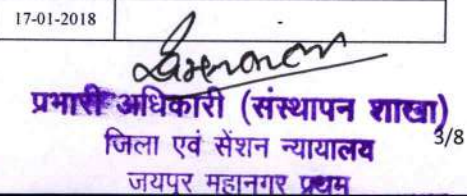 17-01-2018
प्रभारी अधिकारी (संस्थापन शाखा)
जिला एवं सेंशन न्यायालय
3/8
जयपुर महानगर प्रथम